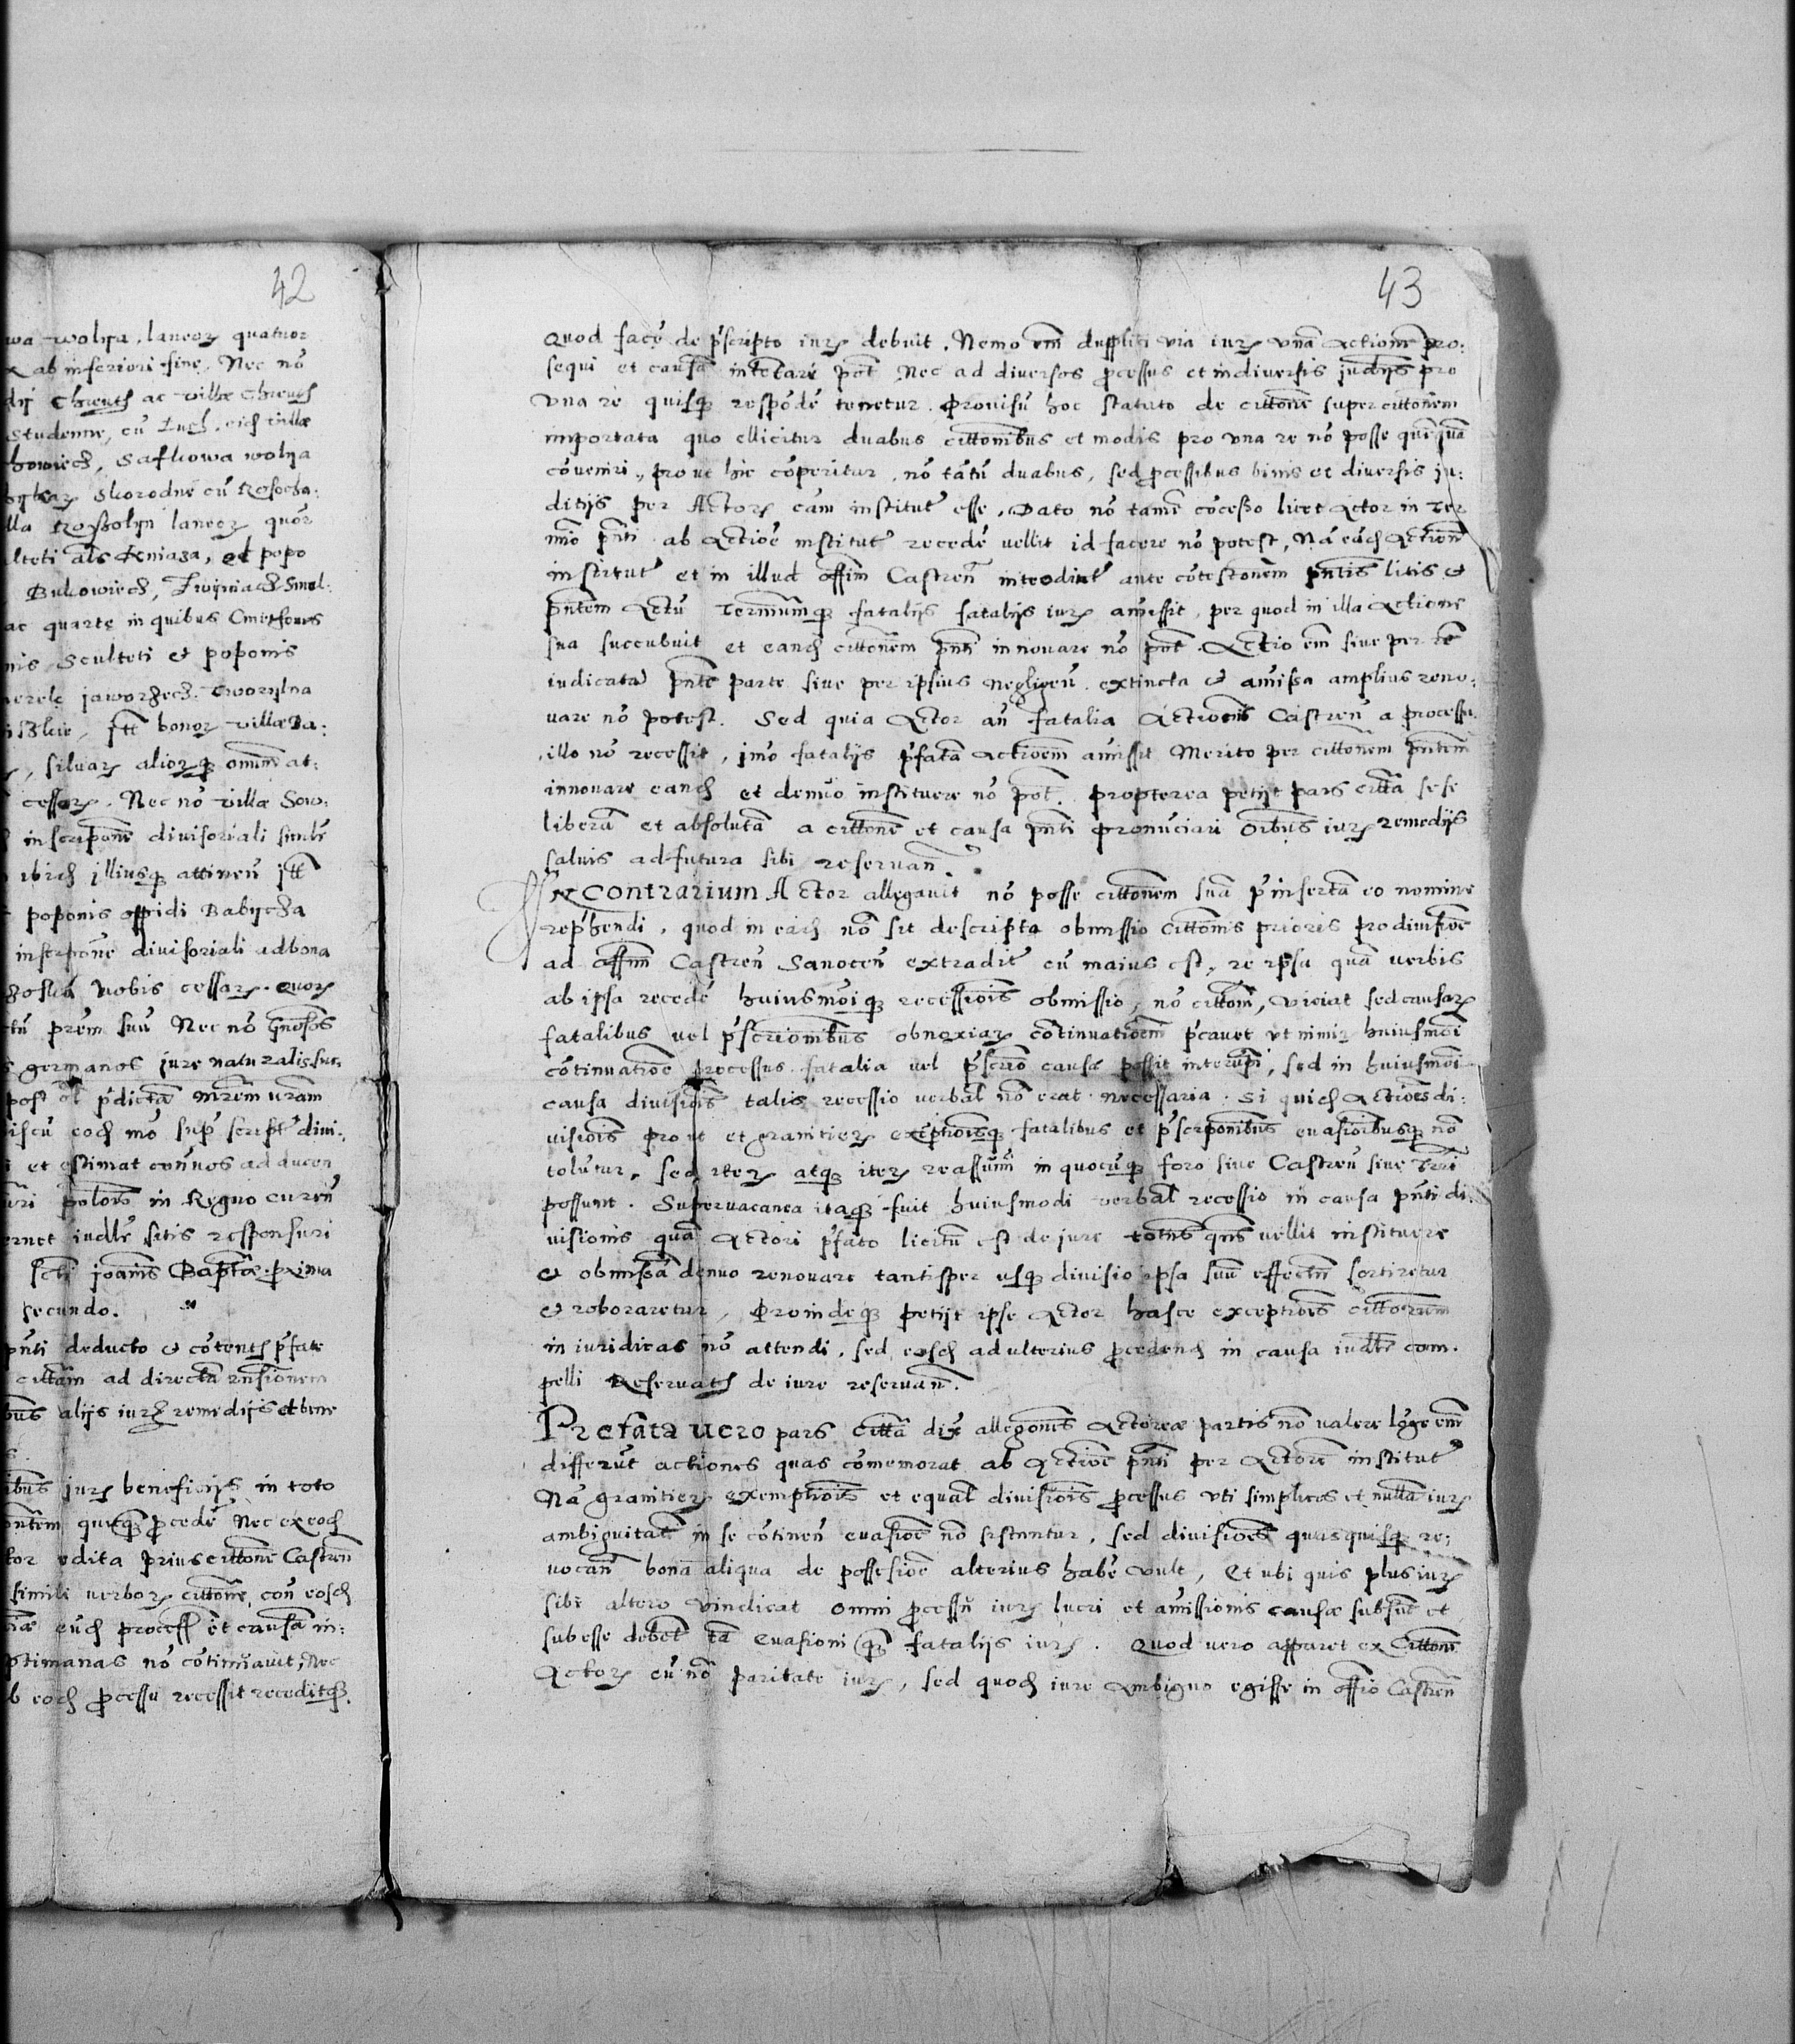 42
wa wolya, laneoꝝ quatuor
ab inferiori fine, Nec nõ
Studenne, cũ
howiecz, Safkowa wolya
Skorodne cũ Rosocha:
lla Rossolyn laneoꝝ quor̃
lteti als Kniaza, et popo
Bukowiecz, Smol:
ac quarte in quibus Cmethones
nis Sculteti et poponis
jaworzecz. Tworylna
bonoꝝ villæ Da:
, siluaꝝ alioꝝqꝫ omniũ at:
cessoꝝ. Nec nõ villæ Sow:
inscripone divisoriali simlr
illiusqꝫ attineñ
poponis oppidi Babycza
inscripcone divisoriali ad bona
vobis cessaꝝ. quoꝝ
prem suũ Nec nõ Gnosos
germanos jure naturali suc:
post pdictã mrem vram
eoď mõ sup script divi:
et estimat con vos ad ducen
in Regno cureñ
iudlr sitis responsuri
Scti joannis Baptæ proxima
secundo.
pñti deducto et cõtentis pfate
cittam ad directã rñsionem
bus alijs iurꝫ remedijs et bene
ibus jurꝫ beneficijs in toto
pñtem procedẽ Nec ex eoď
tor edita prius cittone Castreñ
simili verboꝝ cittone, con eosď
eũď process et causã in:
ptimanas nõ cõtinũavit, Nec
b eoď processu recessit receditqꝫ.
43
Quod facẽ de pscripto iurꝫ debuit. Nemo em duplici via iurꝫ vnã Actionẽ pro:
sequi et causã intẽtare pot Nec ad diversos processus et in diversis judicijs pro
vna re quisqꝫ respõdẽ tenetur. Provisũ hoc statuto de cittone super cittonem
importata quo ellicitur duabus cittonibus et modis pro vna re nõ posse quẽquã
cõveniri, prout hic cõperitur, nõ tãtũ duabus, sed processibus binis et diversis ju:
ditijs per Actorꝫ eam institut esse. Dato nõ tamẽ cõcesso licet Actor in Ter
mio pñti ab Actiõe institut recedẽ vellit id facere nõ potest, Nã eãď Actionẽ
institut et in illud offim Castreñ introduct ante cõtestationem pñtis litis et
pñtem Actũ Terminumqꝫ fatalijs fatalijs iurꝫ amissit, per quod in illa Actione
sua succubuit et eanď cittonem pñti innovare nõ pot. Actio em sive per rẽ
iudicatã pñte parte sive per ipsius negligen. extincta et amissa amplius reno:
vare nõ potest. Sed quia Actor añ fatalia Actionis Castreñ a processu
illo nõ recessit, imo fatalijs pfatã Actioem amissit Merito per cittonem pñtem
innovare eanď et denuo instituere nõ pot. propterea petijt pars citta sese
liberã et absolutã a cittone et causa pñti pronũciari Oibus iurꝫ remedijs
salvis ad futura sibi reservañ.
In contrarium Actor allegavit nõ posse cittonem suã pinsertã eo nomine
rephendi, quod in eaď nõ sit descripta obmissio cittonis prioris pro divisiõe
ad offim Castreñ Sanoceñ extradit cũ maius est, re ipsa quã verbis
ab ipsa recedẽ huiusmõiqꝫ recessionis obmissio, nõ cittom, viciat sed causaꝝ
fatalibus vel pscriõnibus obnoxiaꝝ continuationem pcavet ut nimiꝝ huiusmõi
cõtinuatiõe processus fatalia vel pscrio causæ possit interũpi, sed in huiusmõi
causa divisiõis talis recessio verbal nõ erat necessaria. Si quiď Actiones di:
visiõis prout et granitieꝝ exemptionisqꝫ fatalibus et pscriponibus evasionibusqꝫ nõ
tolũtur, sed iteꝝ atqꝫ iteꝝ reassumi in quocũqꝫ foro sive Castreñ sive Trri
possunt. Supervacanea itaqꝫ fuit huiusmodi verbal recessio in causa pñti di:
visionis quã Actori pfato licitũ est de jure totiens quotiens vellit instituere
et obmissã denuo renovare tantisper usqꝫ divisio ipsa suũ effectũ sortiretur
et roboraretur. Proindeqꝫ petijt ipse Actor hasce exceptiões cittorum
in iuridicas nõ attendi, sed eosď ad ulterius procedenď in causa iudlr com.
pelli Reservatis de iure reservañ.
Prefata vero pars citta dix allegonis Actoreæ partis nõ valere lõge em
differũt actiones quas cõmemorat ab Actiõe pñti per Actorẽ institut
Nã granitieꝝ exemptionis et equal divisionis processus vti simplices et nullã iurꝫ
ambiguitatẽ in se cõtineñ evasiõe nõ sistuntur, sed divisiones quas quisqꝫ re:
vocañ bona aliqua de possessiõe alterius habẽ vult, Et ubi quis plus iurꝫ
sibi altero vindicat omni processũ iurꝫ lucri et amissionis causæ subsũt et
subesse debẽt tã evasioni qꝫ fatalijs iurꝫ. Quod vero apparet ex Cittone
Actorꝫ cũ nõ paritate iurꝫ, sed quoď iure ambiguo egisse in offio Castreñ